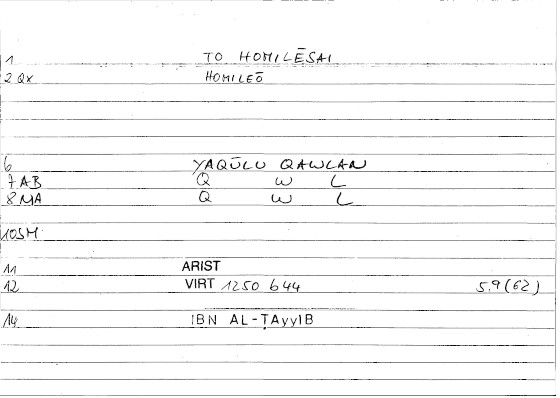 1 TO HOMILĒSAI
2 QX HOMILEŌ
6 YAQŪLU QAWLAN
7 AB Q W L
8 MA Q W L
10SM
11 ARIST
12 VIRT 1250 b44 5.9 (62)
14 IBN AL-ṬAyyIB